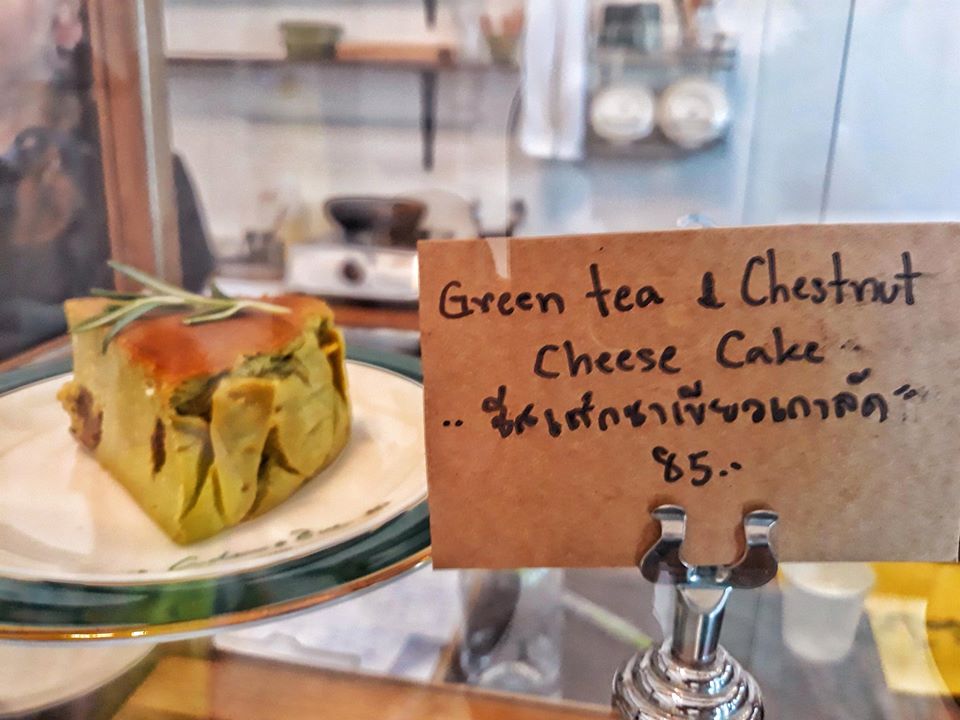 Green tea & Chestnut
Cheese Cake..
.. ชีสเค้กชาเขียวเกาลัด"
85..